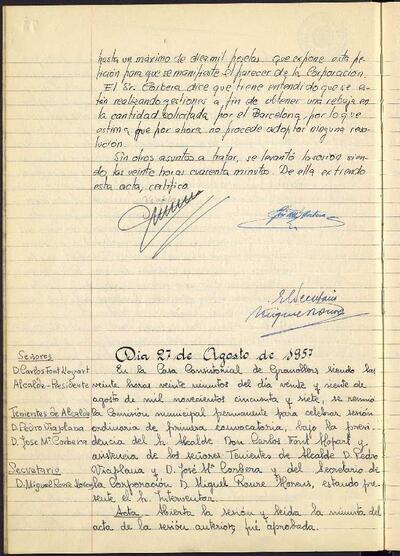 hasta un máximo de diez mil pesetas. que expone esta pe-
tición para que se manifieste el parecer de la Corporación.
El Sr. Corbera dice que tiene entendido que se es-
tán realizando gestiones a fin de obtener una rebaja en
la cantidad solicitada por el Barcelona, por lo que
estima que por ahora no procede adoptar ninguna reso-
lución.
Sin otros asuntos a tratar, se levantó la sesión sien-
do las veinte horas cuarenta minutos. De ella extiendo
esta acta, certifico.
El Secretario
Señores
D. Carlos Font Llopart
Alcalde-Presidente
Tenientes de Alcalde
D. Pedro Viaplana
D. Jose Mª Corbera
Secretario
D. Miguel Roure
Dia 27 de Agosto de 1957
En la Casa Consistorial de Granollers siendo las
veinte horas veinte minutos del día veinte y siete de
agosto de mil novecientos cincuenta y siete, se reunió
la Comisión municipal permanente para celebrar sesión
ordinaria de primera convocatoria, bajo la presi-
dencia del Sr. Alcalde Don Carlos Font Llopart y
asistencia de los señores Tenientes de Alcalde D. Pedro
Viaplana y D. José Mª Corbera y del Secretario de
la Corporación D. Miguel Roure, estando pre-
sente el Sr. Interventor.
Acta. Abierta la sesión y leida la minuta del
acta de la sesión anterior, fué aprobada.